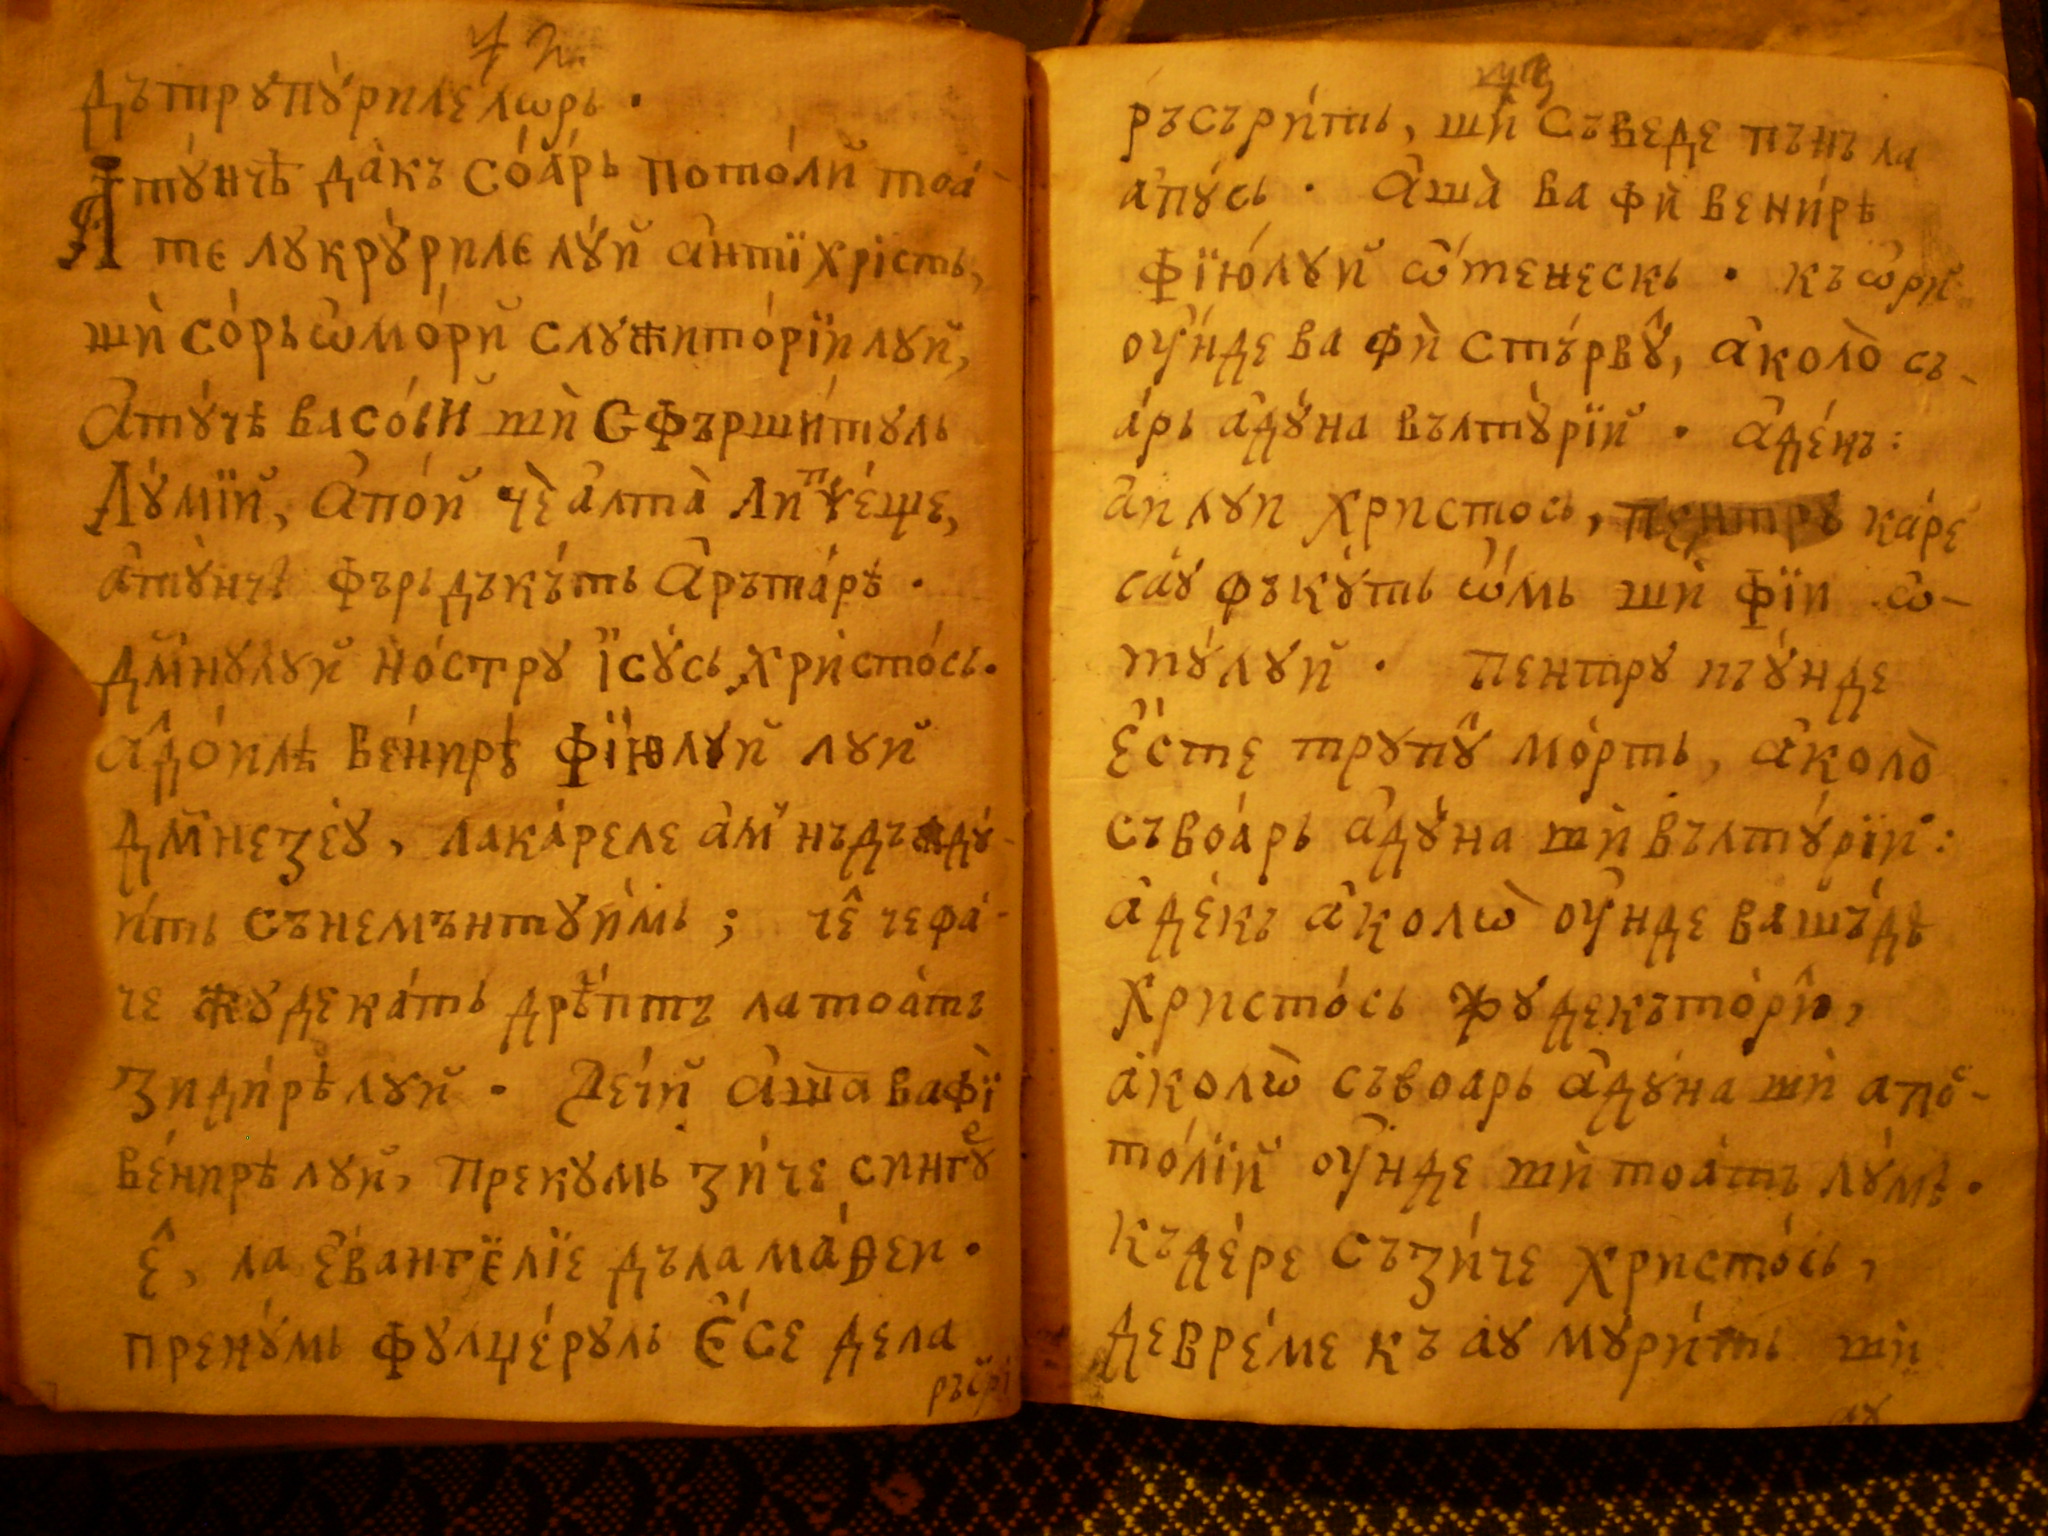 дътрꙋпꙋ́риле лѡрь .
Атꙋ́нчѣ да́къ со́а́рь потоли́й тоа́-
те лꙋкрꙋ́риле лꙋ́й а҆нтїхрі́сть,
шѝ со́рь ѡ҆мо́рй слꙋжито́рїи лꙋй,
А҆тꙋ́чѣ ва со́ьй шѝ Сфършитꙋль
Лꙋ́мїй, а҆по́й чѐ а҆лта̀ ли ѱе́ще,
а҆тꙋ̀нчѣ фърь дъкъ́ть а҆ръта́рѣ .
дм҃нꙋлꙋй но́стрꙋ і҆сꙋ́сь христо́сь.
а҆до́илѣ ве́нирѣ фїюлꙋй лꙋй
дм҃незе́ꙋ, лака́реле а҆м нъдъждꙋ-
и́ть сънемънтꙋи́мь ; че҆ чефа́-
че жꙋдека́ть дрѣ́птъ латоа́тъ
зиди́рѣ лꙋй . Де́чй а҆ша вафі̀
ве́нирѣ лꙋй, прекꙋмь зи́че сингꙋ
е҆, ла е҆вангѐлїе дъла маѳеи .
прекꙋ́мь фꙋлџе́рꙋль е҆́се дела
ръсрі
ръсъри́ть, шѝ съведе пънъ ла
апꙋ́сь . а҆ша̀ ва фѝ вени́рѣ
фїю́лꙋй ѡ҆́менескь . къѡ҆рй
оу҆́нде ва фѝ стъ́рвꙋ҆, а҆коло̀ съ-
а́рь адꙋ́на вълтꙋ́рїй . а҆де́къ :
а҆и лꙋи христось, пентрꙋ ка́ре
са́ꙋ фъкꙋ́ть ѡ҆́мь шѝ фїи ѡ҆-
мꙋ́лꙋй . Пентрꙋ къ ꙋ́нде
е҆́сте трꙋпꙋ҆ мо́рть, а҆коло̀
съвоа́рь а҆дꙋ́на шѝ вълтꙋ́рїй :
адѐкъ а҆колѡ̀ оу҆́нде ва шъ́дѣ
Христо́сь жꙋдекъто́рй,
а҆колѡ̀ съвоарь а҆дꙋ́на шѝ апо-
то́лїй оу҆́нде шѝ тоа́тъ лꙋ́мѣ .
къде́ре съзи́че христо́сь,
девре́ме къ аꙋ мꙋри́ть шѝ
аꙋ